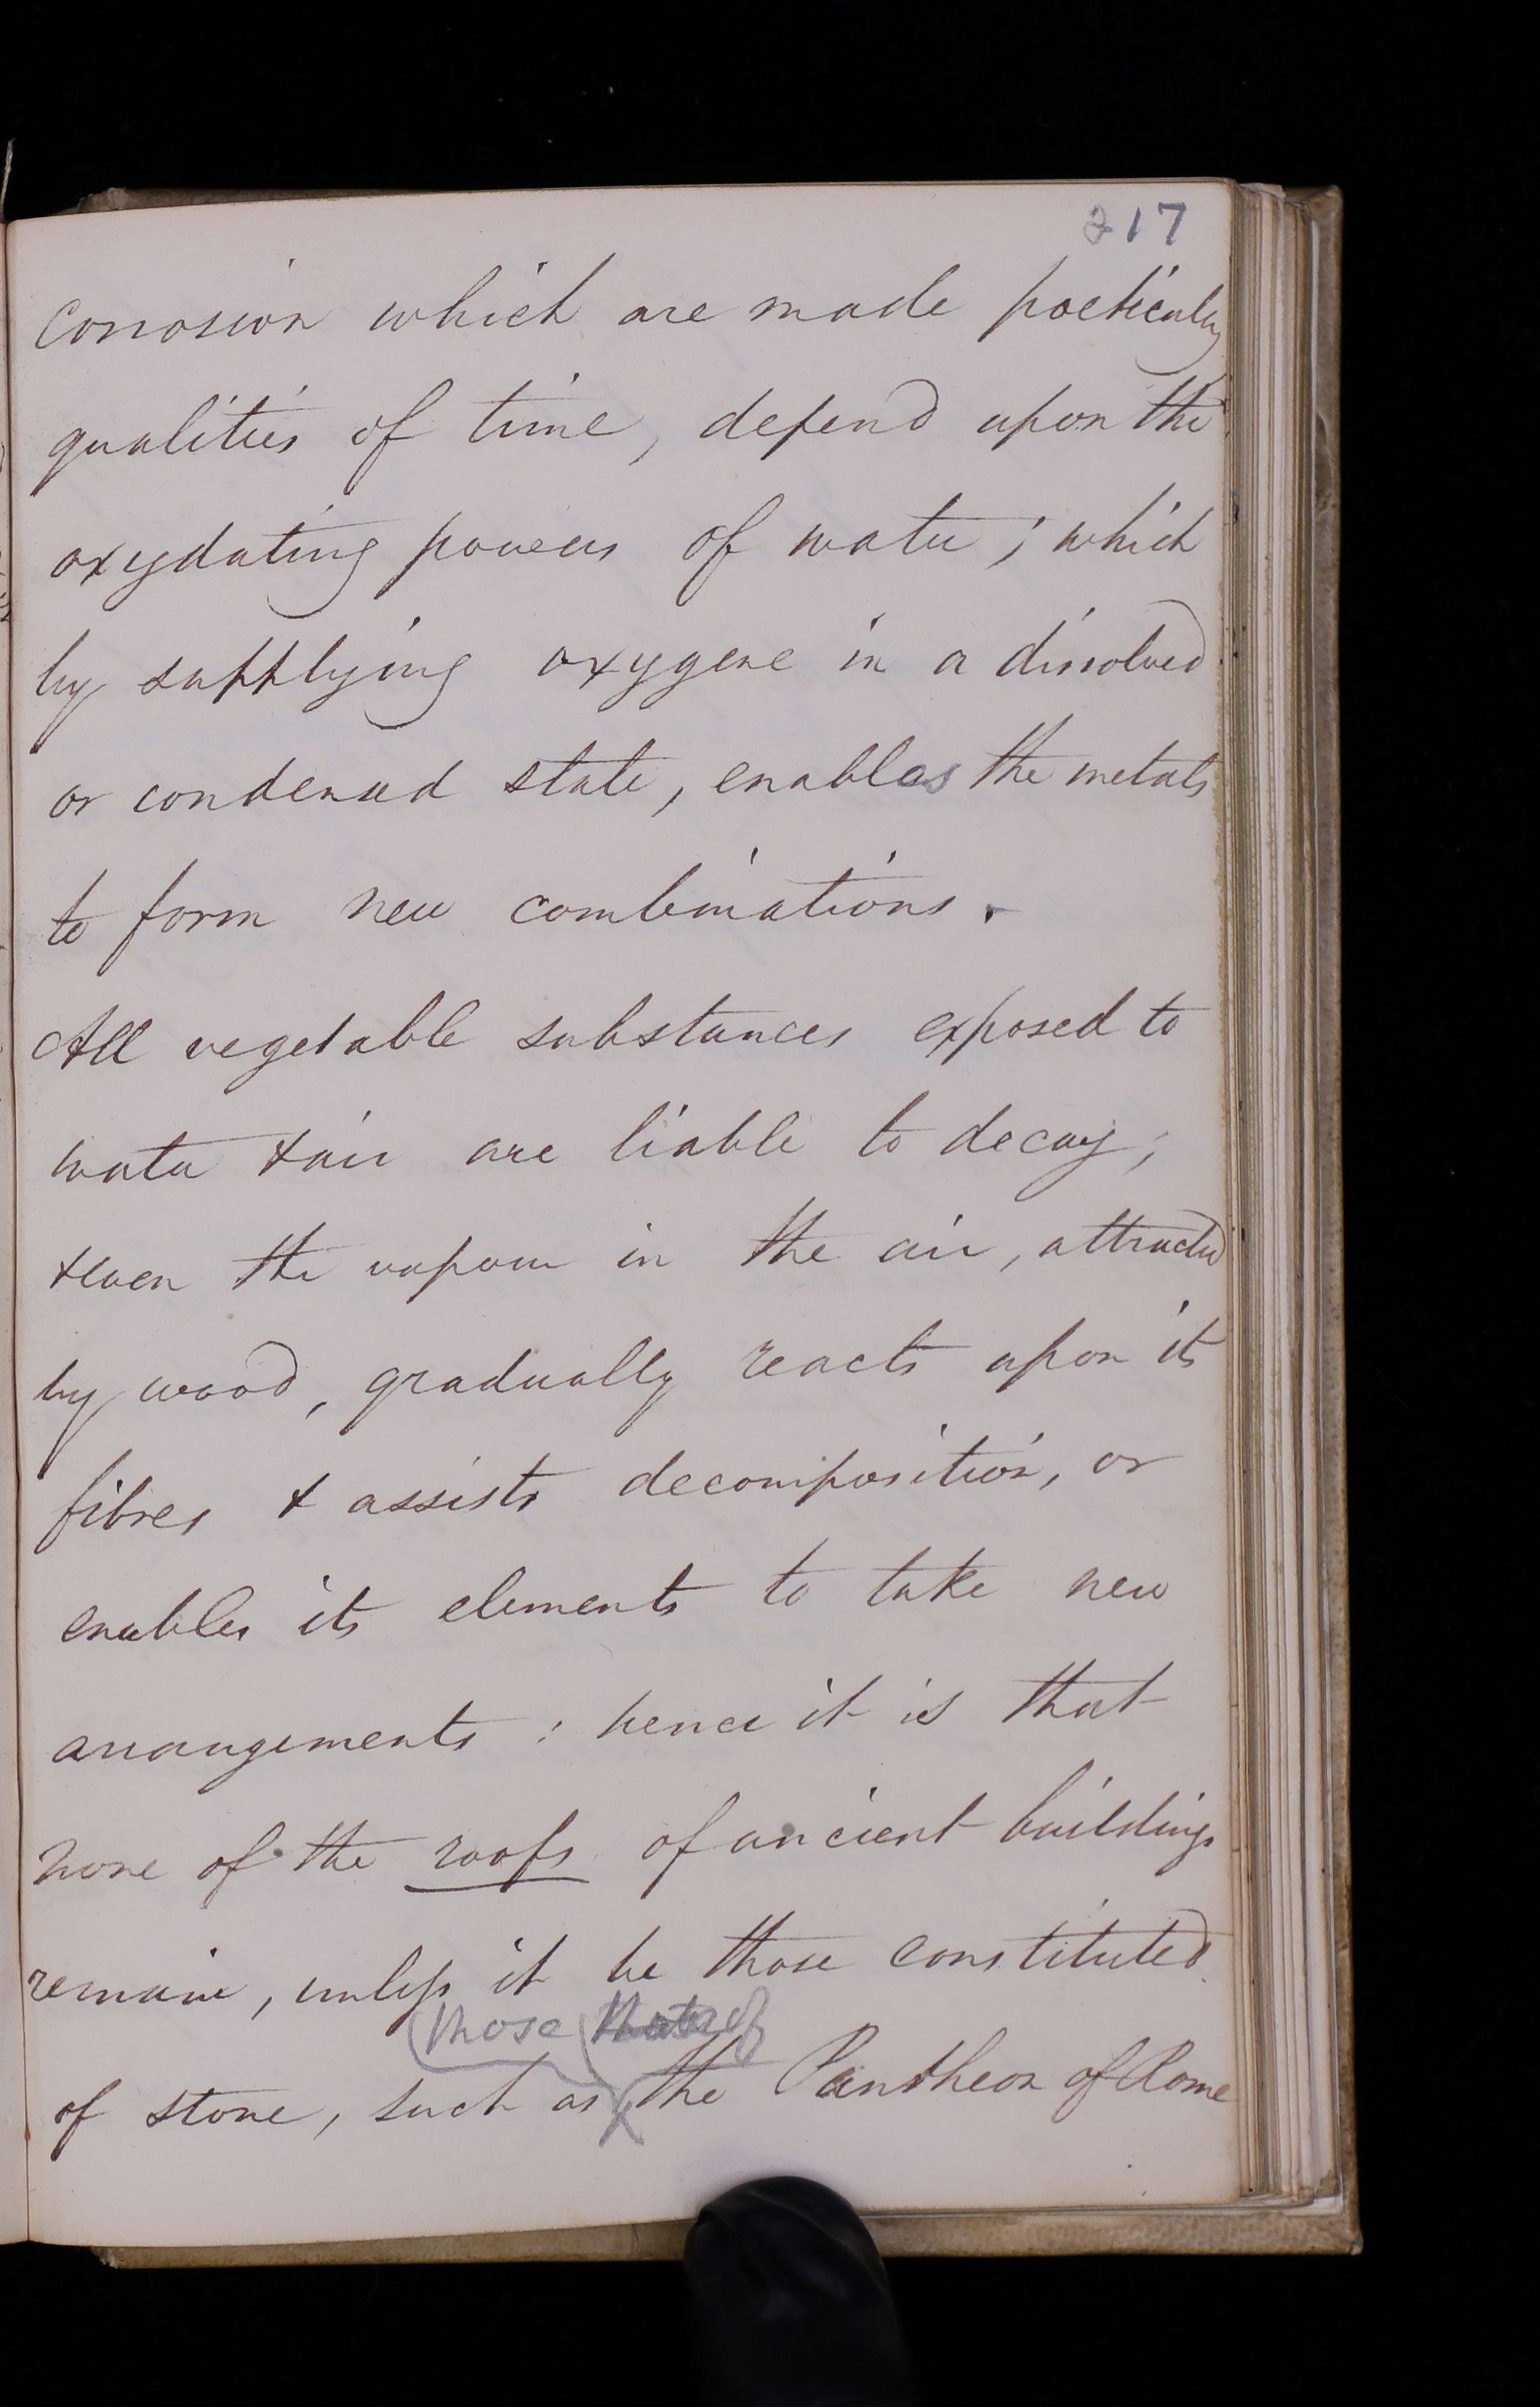 217
corrosion which are made poetically
qualities of time, depend upon the
oxydating powers of water; which
by supplying oxygene in a dissolved
or condensed state, enables the metals
to form new combinations.
All vegetable substances exposed to
water & air are liable to decay;
& even the vapour in the air, attracted
by wood, gradually reacts upon its
fibres & assists decomposition, or
enables its elements to take new
arrangements: hence it is that
none of the roofs of ancient buildings
remain, unless it be those constituted
those of
of stone, such as the Pantheon of Rome